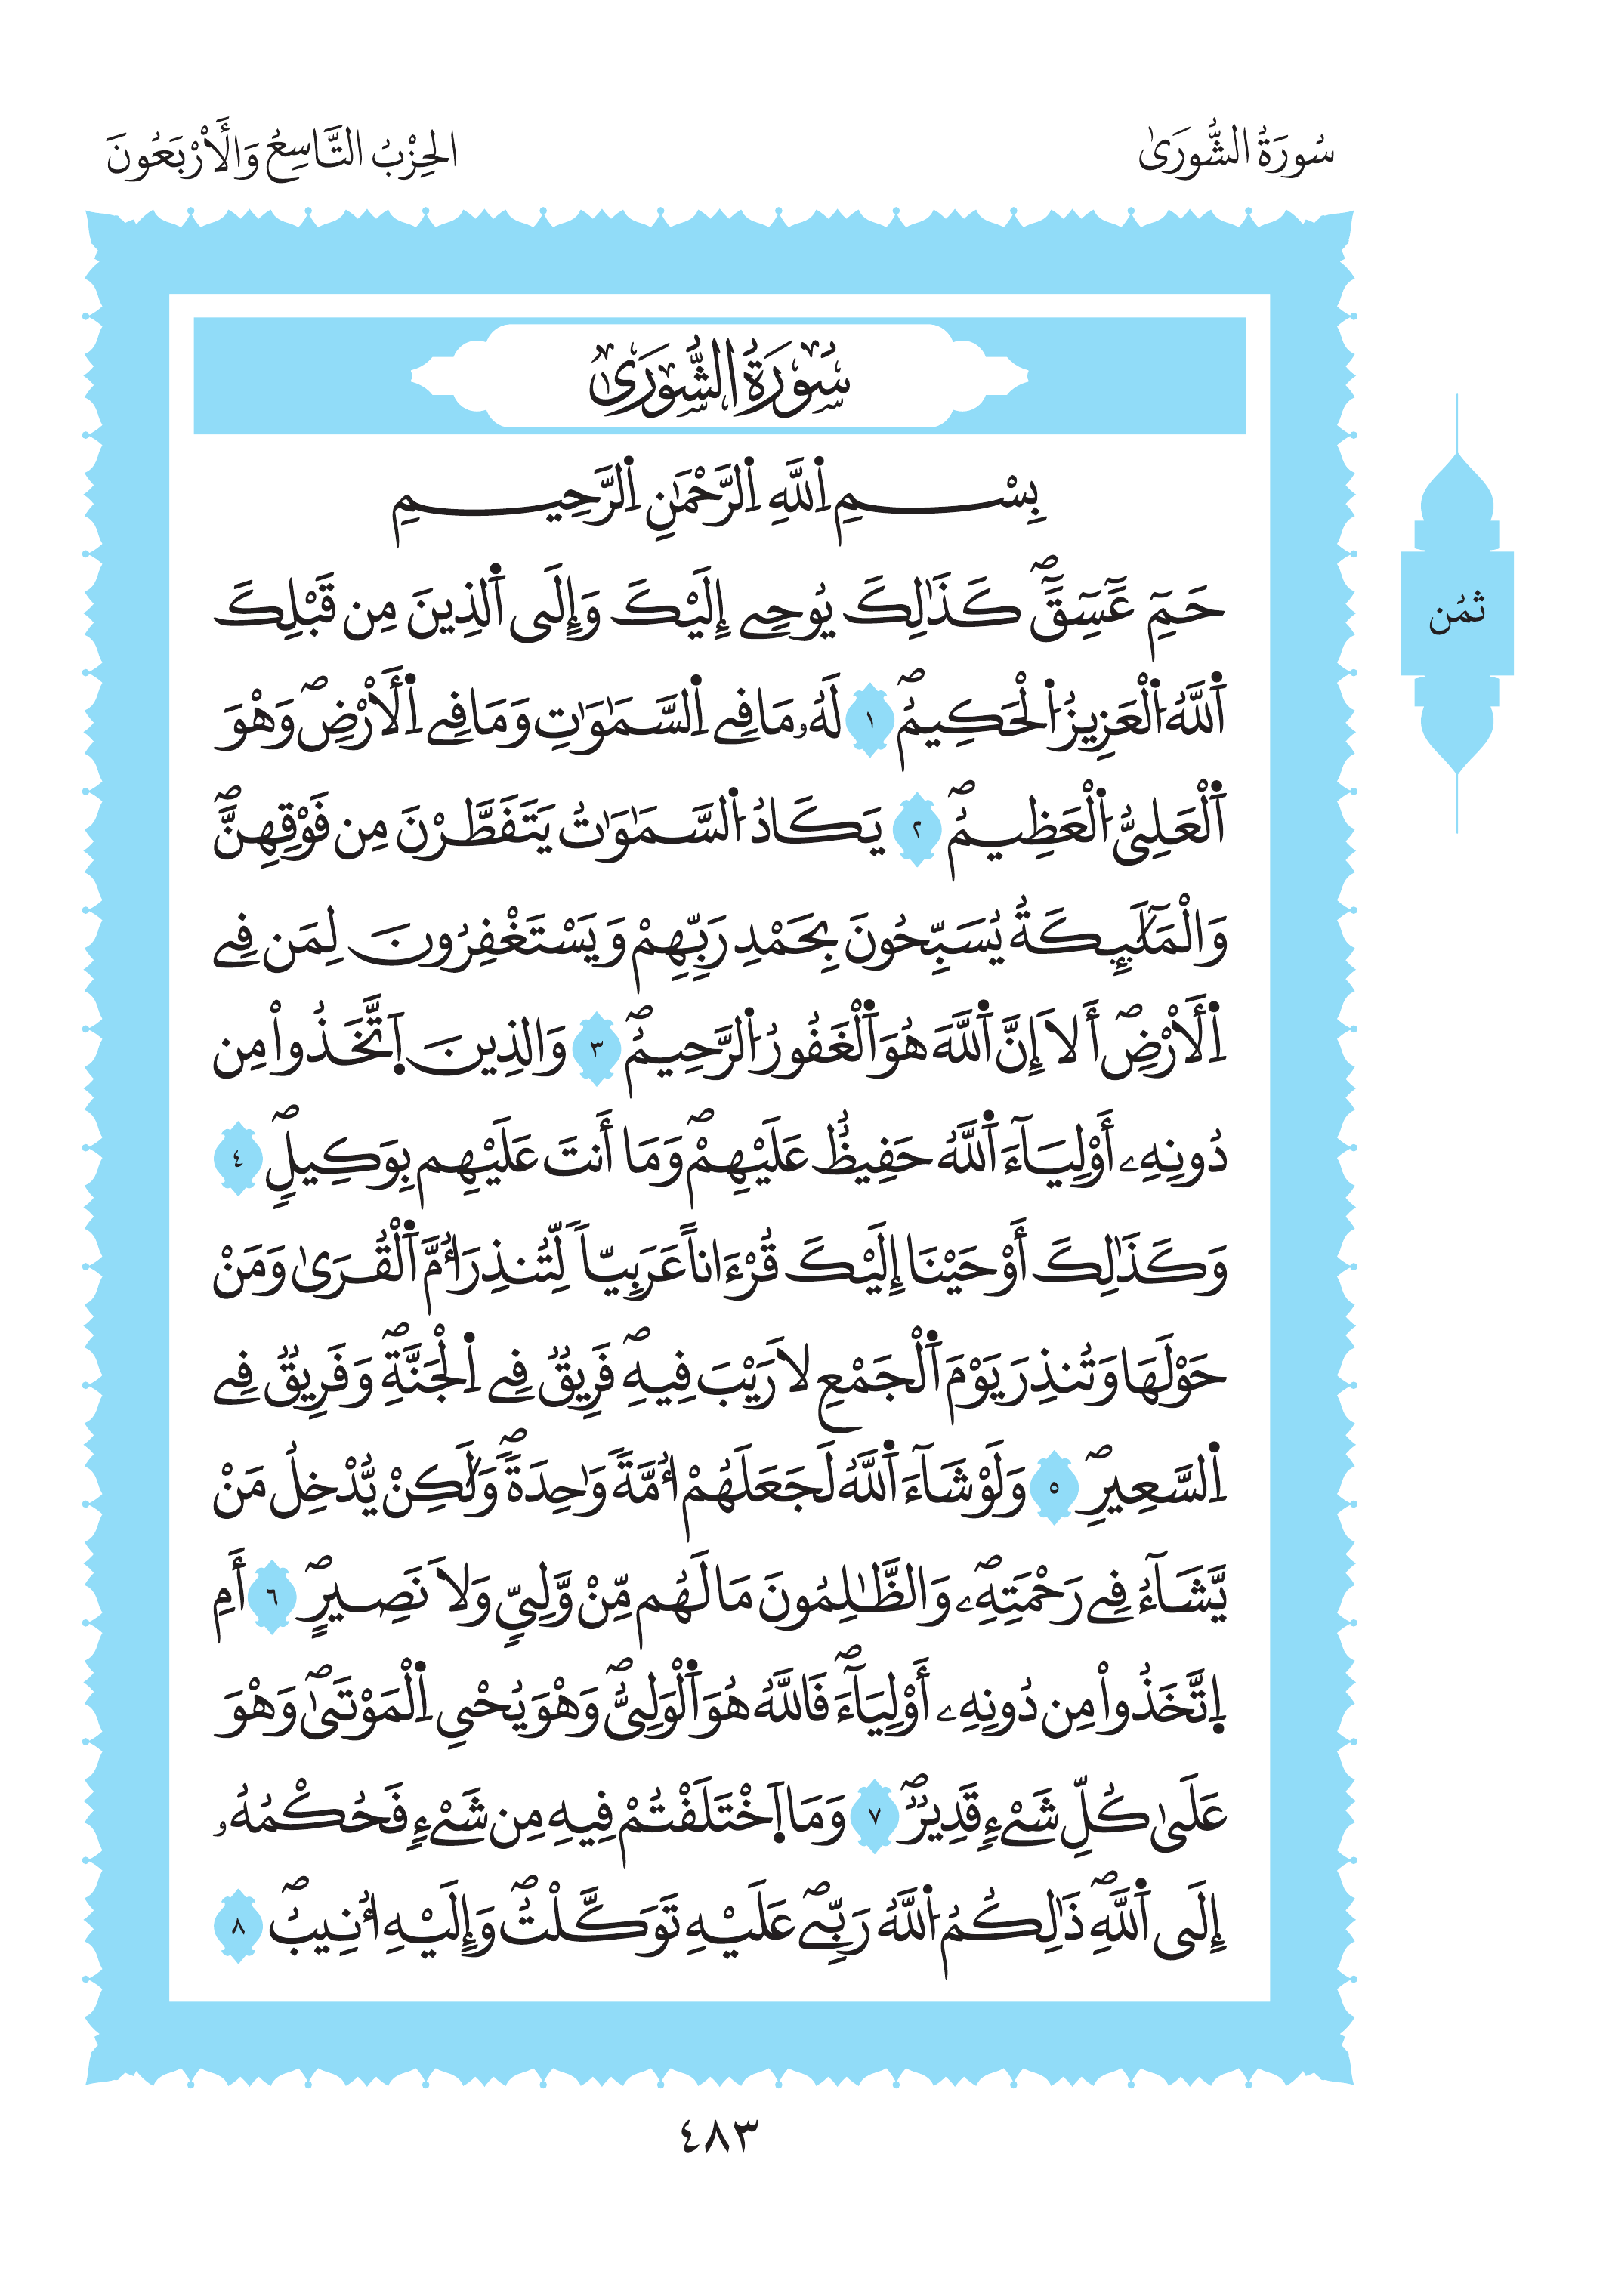 سُورَةُ الشُّورَىٰ
الحِزْبُ التَّاسِعُ وَالْأَرْبَعُونَ
سُورَةُ الشُّورَىٰ
بِسْمِ اِ۬للَّهِ اِ۬لرَّحْمَٰنِ اِ۬لرَّحِيمِ
ثمُن
حَمِٓ عَٓسِٓقَٓۖ كَذَٰلِكَ يُوحِے إِلَيْكَ وَإِلَى اَ۬لذِينَ مِن قَبْلِكَ
اَ۬للَّهُ اُ۬لْعَزِيزُ اُ۬لْحَكِيمُۖ ١ لَهُۥ مَا فِے اِ۬لسَّمَٰوَٰتِ وَمَا فِے اِ۬لَارْضِۖ وَهْوَ
اَ۬لْعَلِيُّ اُ۬لْعَظِيمُۖ ٢ يَكَادُ اُ۬لسَّمَٰوَٰتُ يَتَفَطَّرْنَ مِن فَوْقِهِنَّۖ
وَالْمَلَٰٓئِكَةُ يُسَبِّحُونَ بِحَمْدِ رَبِّهِمْ وَيَسْتَغْفِرُونَ لِمَن فِے
اِ۬لَارْضِۖ أَلَا إِنَّ اَ۬للَّهَ هُوَ اَ۬لْغَفُورُ اُ۬لرَّحِيمُۖ ٣ وَالذِينَ اَ۪تَّخَذُواْ مِن
دُونِهِۦ أَوْلِيَآءَ اَ۬للَّهُ حَفِيظٌ عَلَيْهِمْۖ وَمَا أَنتَ عَلَيْهِم بِوَكِيلٍۖ ٤
وَكَذَٰلِكَ أَوْحَيْنَا إِلَيْكَ قُرْءَاناً عَرَبِيّاً لِّتُنذِرَ أُمَّ اَ۬لْقُرَىٰ وَمَنْ
حَوْلَهَا وَتُنذِرَ يَوْمَ اَ۬لْجَمْعِ لَا رَيْبَ فِيهِۖ فَرِيقٌ فِے اِ۬لْجَنَّةِۖ وَفَرِيقٌ فِے
اِ۬لسَّعِيرِۖ ٥ وَلَوْ شَآءَ اَ۬للَّهُ لَجَعَلَهُمْ أُمَّةً وَٰحِدَةًۖ وَلَٰكِنْ يُّدْخِلُ مَنْ
يَّشَآءُ فِے رَحْمَتِهِۦۖ وَالظَّٰلِمُونَ مَا لَهُم مِّنْ وَّلِيٍّ وَلَا نَصِيرٍۖ ٦ أَمِ
اِ۪تَّخَذُواْ مِن دُونِهِۦ أَوْلِيَآءَۖ فَاللَّهُ هُوَ اَ۬لْوَلِيُّۖ وَهْوَ يُحْيِ اِ۬لْمَوْتَىٰۖ وَهْوَ
عَلَىٰ كُلِّ شَےْءٍ قَدِيرٌۖ ٧ وَمَا اَ۪خْتَلَفْتُمْ فِيهِ مِن شَےْءٍ فَحُكْمُهُۥ
إِلَى اَ۬للَّهِۖ ذَٰلِكُمُ اُ۬للَّهُ رَبِّےۖ عَلَيْهِ تَوَكَّلْتُۖ وَإِلَيْهِ أُنِيبُۖ ٨
٤٨٣